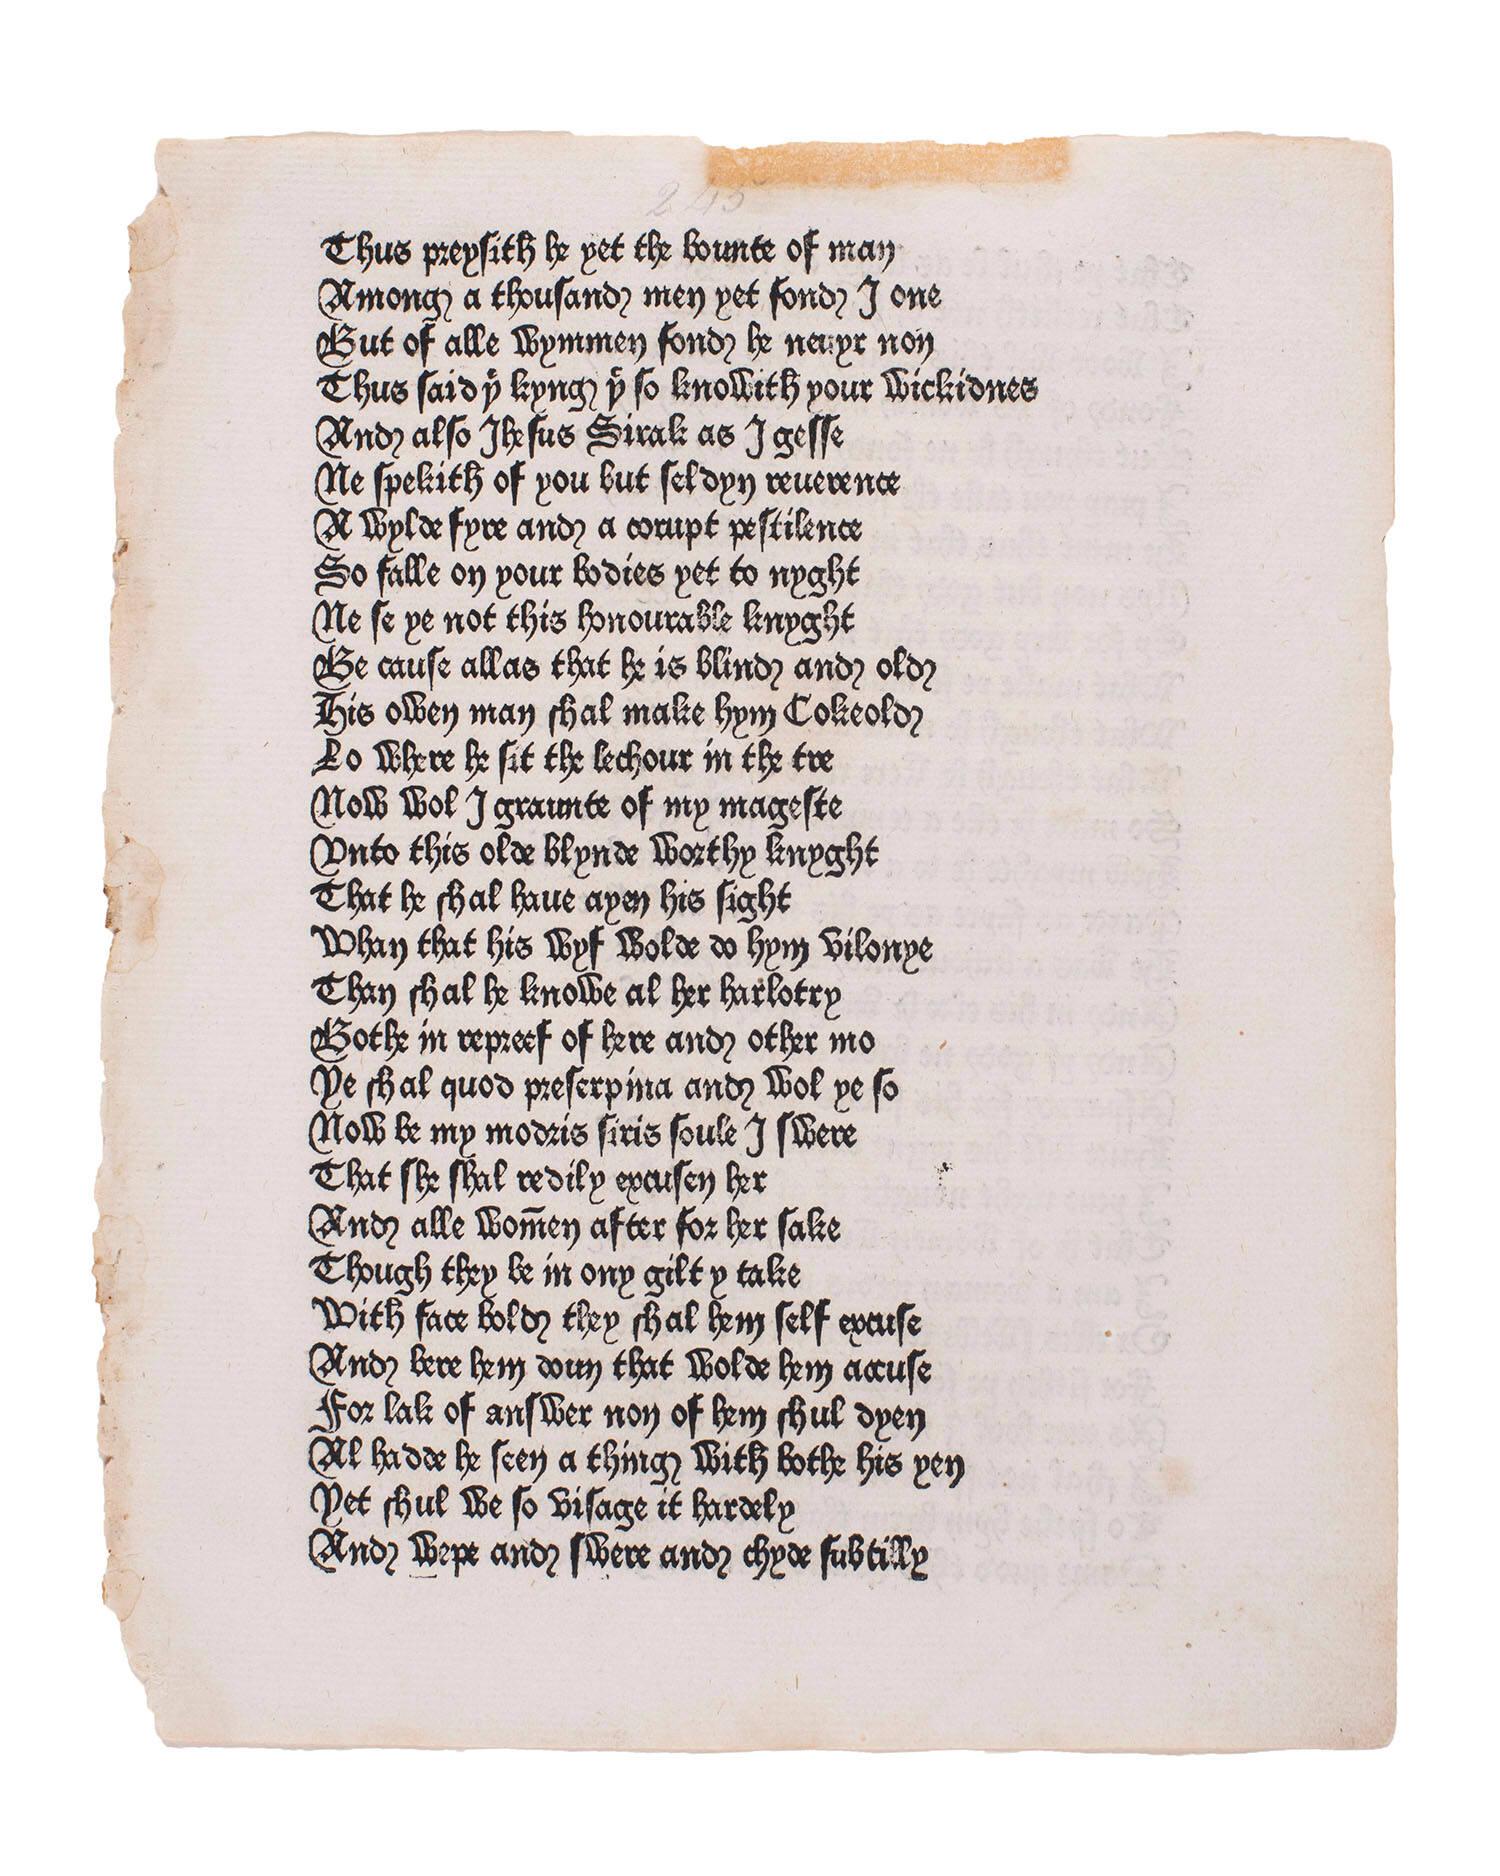 245
Thus preysith he yet the bounte of man
Among a thousand men yet fond I one
But of alle wymmen fond he neuyr non
Thus said yͤ kyng yͭ so knowith your wickidnes
And also Jhesus Sirak as I gesse
Ne spekith of you but seldyn reuerence
A wylde fyre and a corupt pestilence
So falle on your bodies yet to nyght
Ne se ye not this honourable knyght
Be cause allas that he is blind and old
His owen man schal make hym Cokeold
Lo where he sit the lechour in the tre
Now wol I graunte of my mageste
Vnto this olde blynde worthy knyght
That he schal haue ayen his sight
Whan that his wyf wolde do hym vilonye
Than schal he knowe al her harlotry
Bothe in repreef of here and other mo
Ye schal quod preserpina and wol ye so
Now be my modris siris soule I swere
That she shal redily excusen her
And alle wom̄en after for her sake
Though they be in ony gilt y take
With face bold they schal hem self excuse
And bere hem doun that wolde hem accuse
For lak of answer non of hem schul dyen
Al hadde he seen a thing with bothe his yen
Yet schul we so visage it hardely
And wepe and swere and chyde subtilly